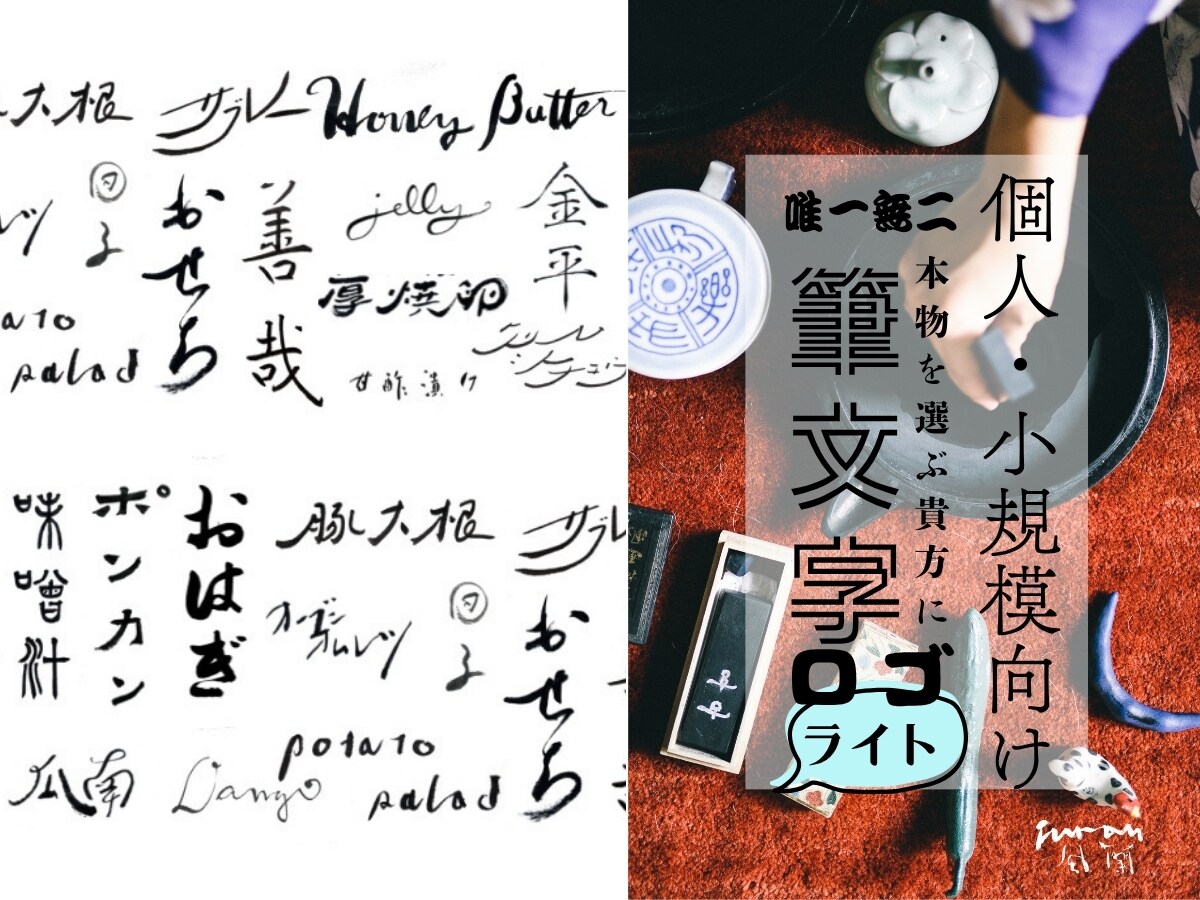 大根
サブレー
Honey Butter
団子
おせち
善哉
jelly
金平
厚焼卵
甘酢漬け
ato
salad
味噌汁
ポンカン
おはぎ
豚大根
サブレ
オムレツ
団子
おせち
南瓜
Dango
potato
salad
個人・小規模向け
唯一無二
本物を選ぶ貴方に
筆文字ロゴ
ライト
furan
風蘭